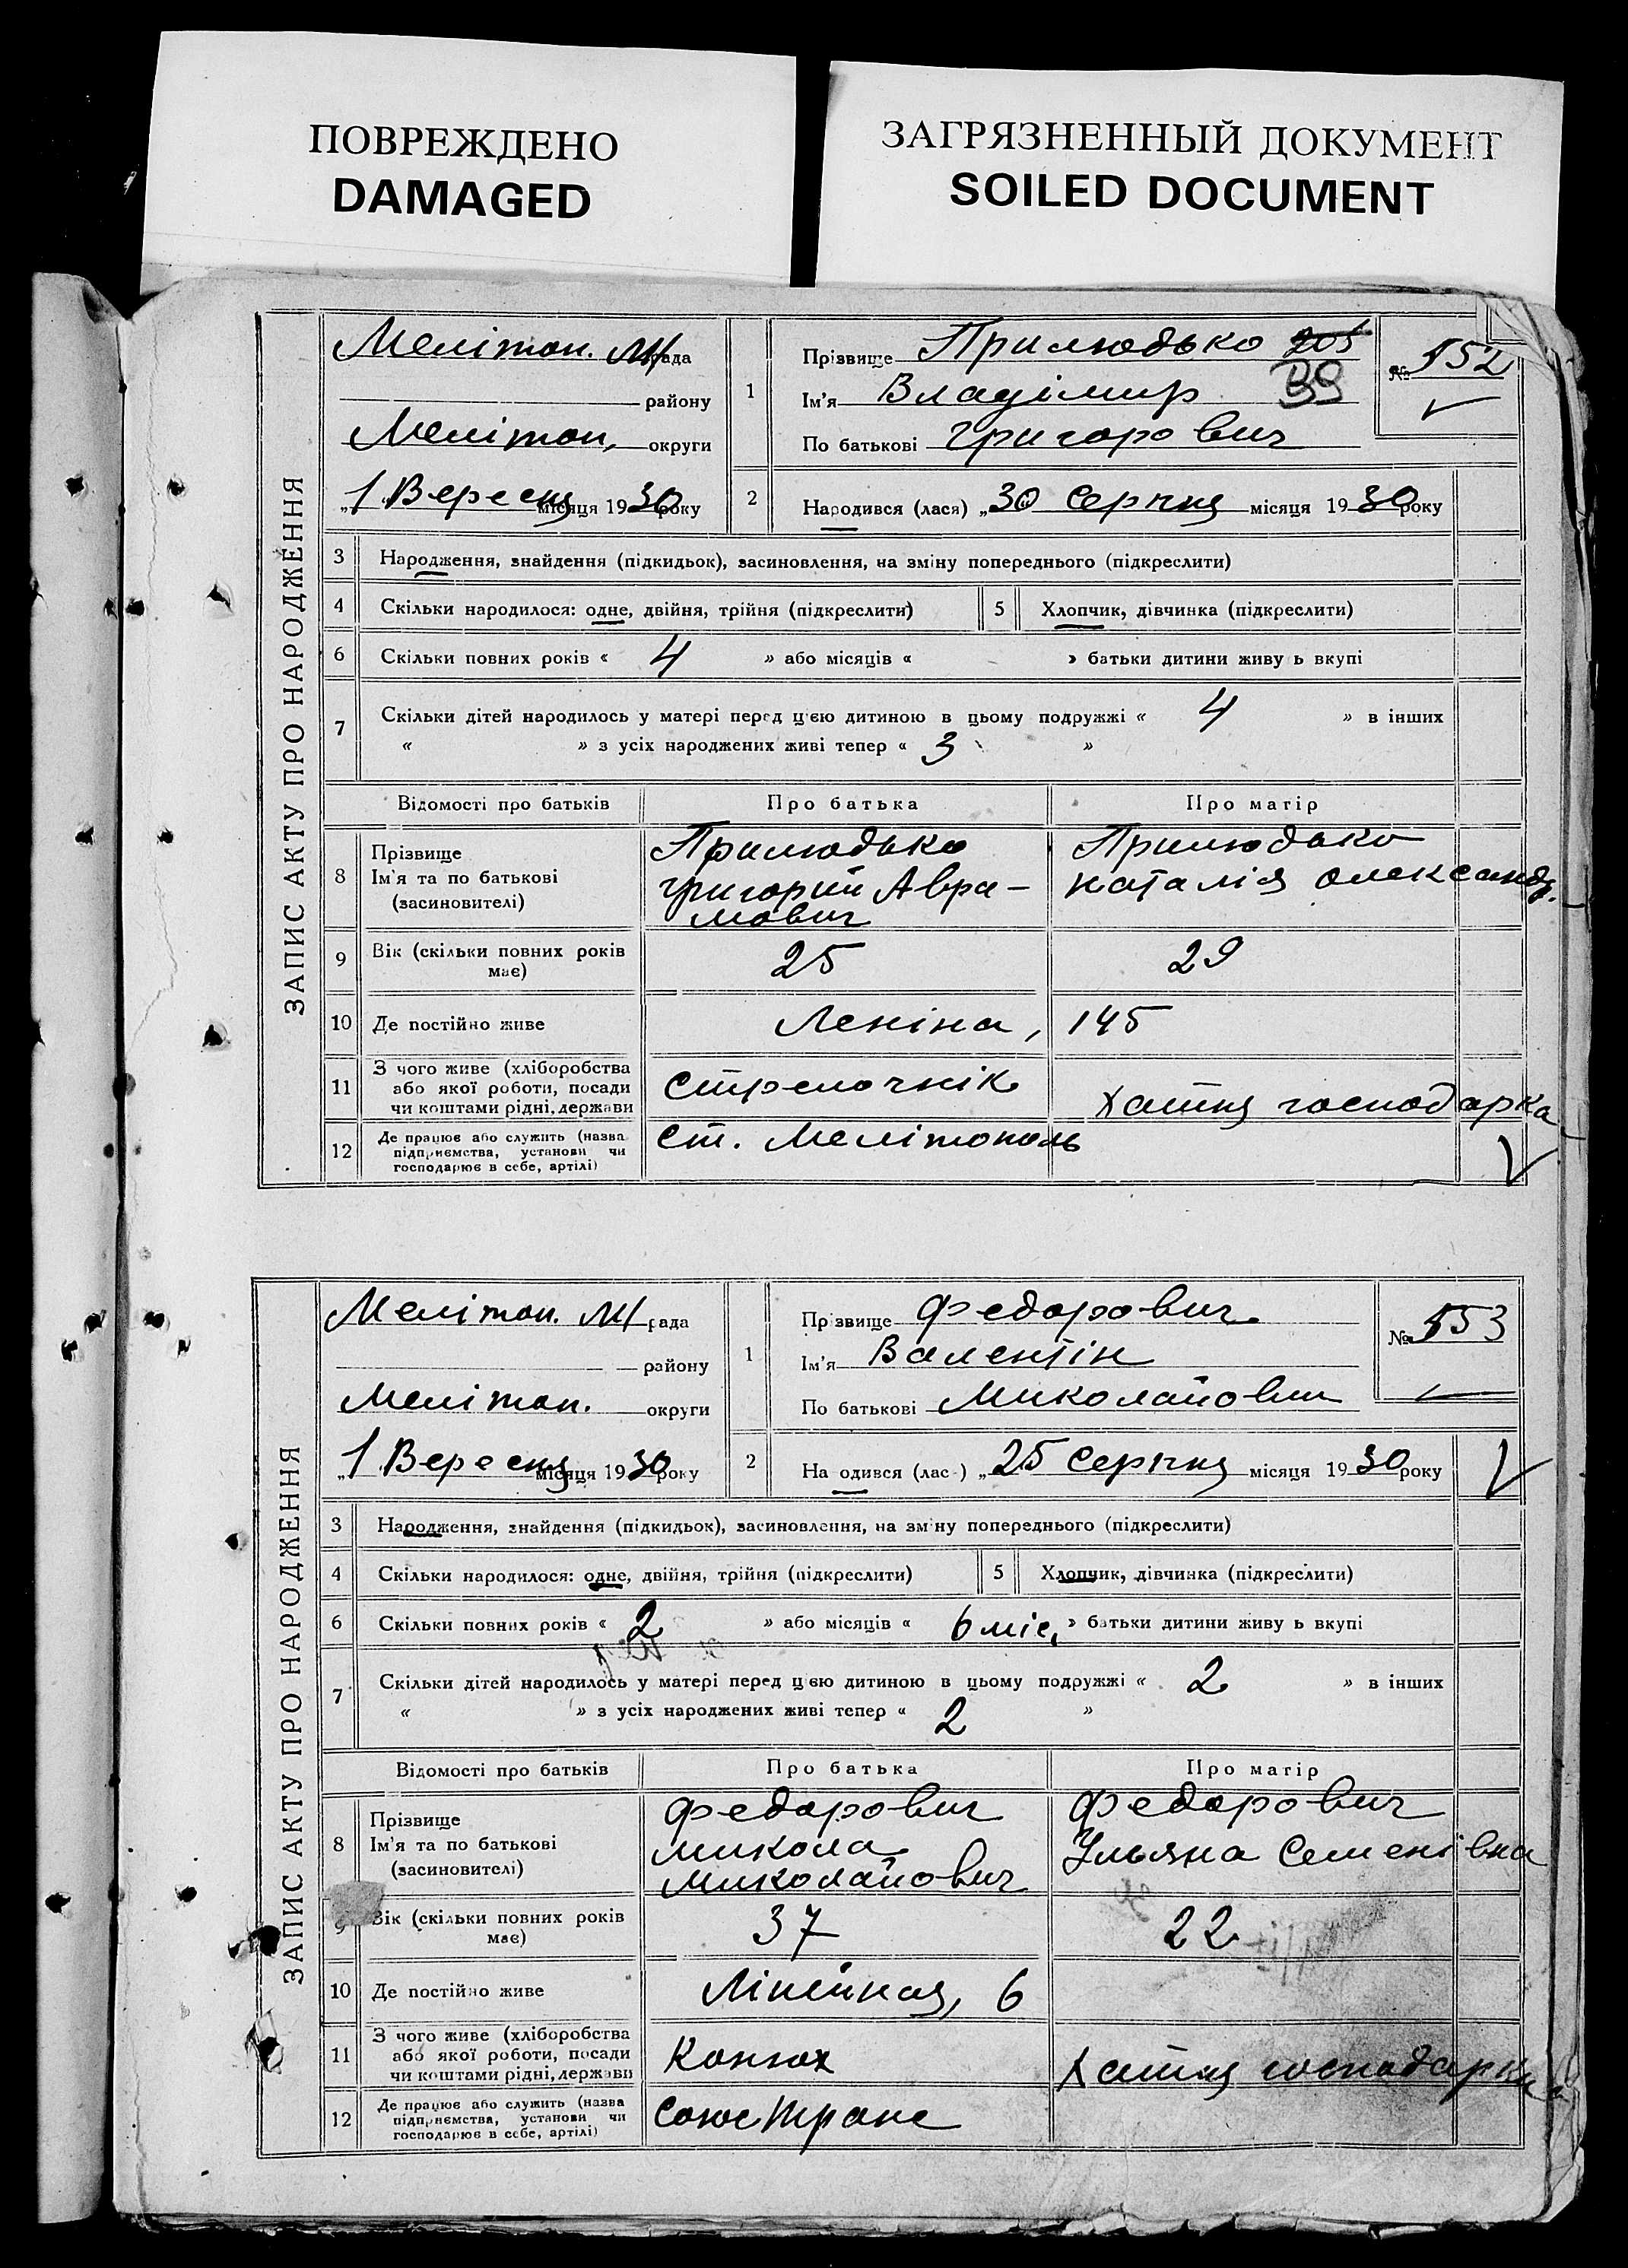 ПОВРЕЖДЕНО
DAMAGED
ЗАГРЯЗНЕННЫЙ ДОКУМЕНТ
SOILED DOCUMENT
ЗАПИС АКТУ ПРО НАРОДЖЕННЯ
Мелітоп. рада
району
Мелітоп. округи
„1 Вересня місяця 1930 року
1
Прізвище Прилюдько
Ім'я Владімир
По батькові Григорович
№ 552
2
Народився (лася) „30 Серпня місяця 1930 року
3 Народження, знайдення (підкидьок), засиновлення, на зміну попереднього (підкреслити)
4 Скільки народилося: одне, двійня, трійня (підкреслити) 5 Хлопчик, дівчинка (підкреслити)
6 Скільки повних років « 4 » або місяців « » батьки дитини живу ь вкупі
7 Скільки дітей народилось у матері перед цією дитиною в цьому подружжі « 4 » в інших
« » з усіх народжених живі тепер « 3 »
Відомості про батьків Про батька Про матір
8 Прізвище
Ім'я та по батькові
(засиновителі)
Прилюдько
Григорий Авра-
мович
Прилюдько
Наталія Олександр.
9 Вік (скільки повних років
має)
25 29
10 Де постійно живе Леніна, 145
11 З чого живе (хліборобства
або якої роботи, посади
чи коштами рідні, держави
Стрелочнік
Хатня господарка
12 Де працює або служить (назва
підприємства, установи чи
господарює в себе, артілі)
ст. Мелітополь
ЗАПИС АКТУ ПРО НАРОДЖЕННЯ
Мелітоп. рада
району
Мелітоп. округи
„1 Вересня місяця 1930 року
1
Прізвище Федорович
Ім'я Валентін
По батькові Миколайович
№ 553
2
На одився (лас-) „25 Серпня місяця 1930 року
3 Народження, знайдення (підкидьок), засиновлення, на зміну попереднього (підкреслити)
4 Скільки народилося: одне, двійня, трійня (підкреслити) 5 Хлопчик, дівчинка (підкреслити)
6 Скільки повних років « 2 » або місяців « 6 міс. » батьки дитини живу ь вкупі
7 Скільки дітей народилось у матері перед цією дитиною в цьому подружжі « 2 » в інших
« » з усіх народжених живі тепер « 2 »
Відомості про батьків Про батька Про матір
8 Прізвище
Ім'я та по батькові
(засиновителі)
Федорович
Микола
Миколайович
Федорович
Ульяна Семенівна
9 Вік (скільки повних років
має)
37 22
10 Де постійно живе Лінейная, 6
11 З чого живе (хліборобства
або якої роботи, посади
чи коштами рідні, держави
Конюх
Хатня господарка
12 Де працює або служить (назва
підприємства, установи чи
господарює в себе, артілі)
Союстранс